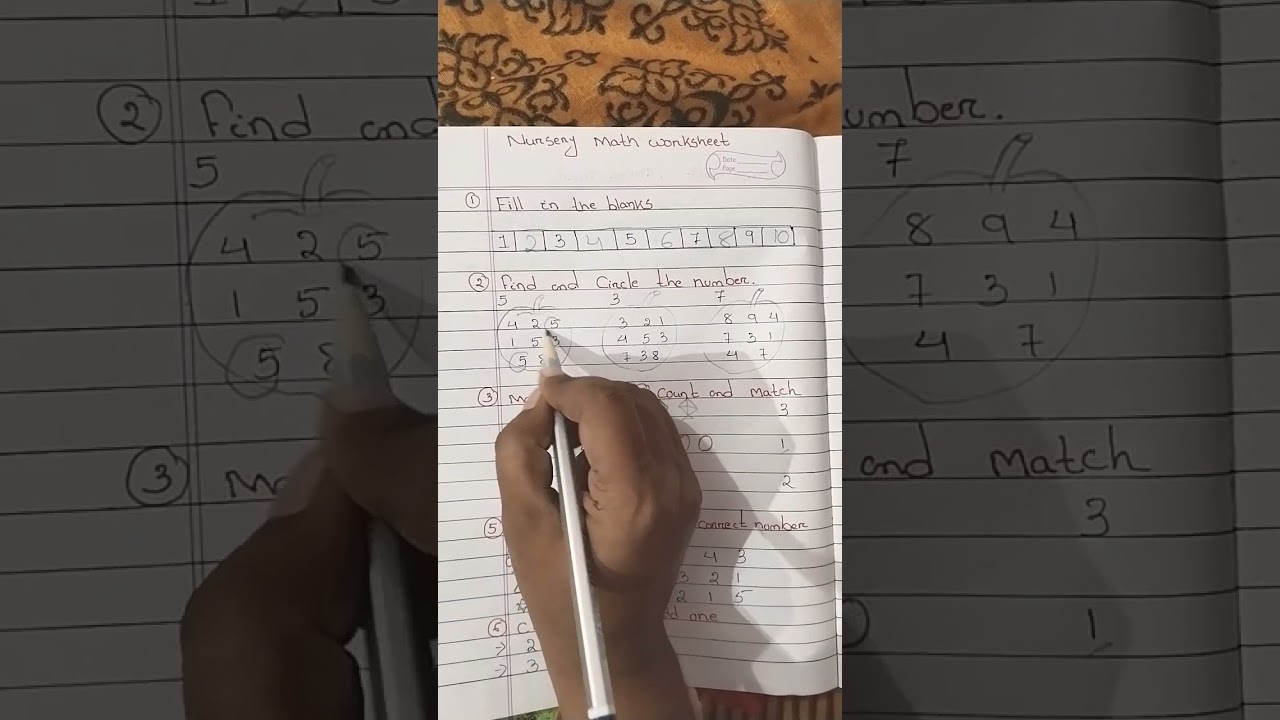 Nursery Math worksheet
Date
Page
① Fill in the blanks
1 2 3 4 5 6 7 8 9 10
② Find and Circle the number.
5 3 7
4 2 5 3 2 1 8 9 4
1 5 3 4 5 3 7 3 1
5 8 7 3 8 4 7
③ Count and Match
3
1
2
⑤ correct number
4 3
3 2 1
2 1 5
⑥ C one
→ 2
→ 3